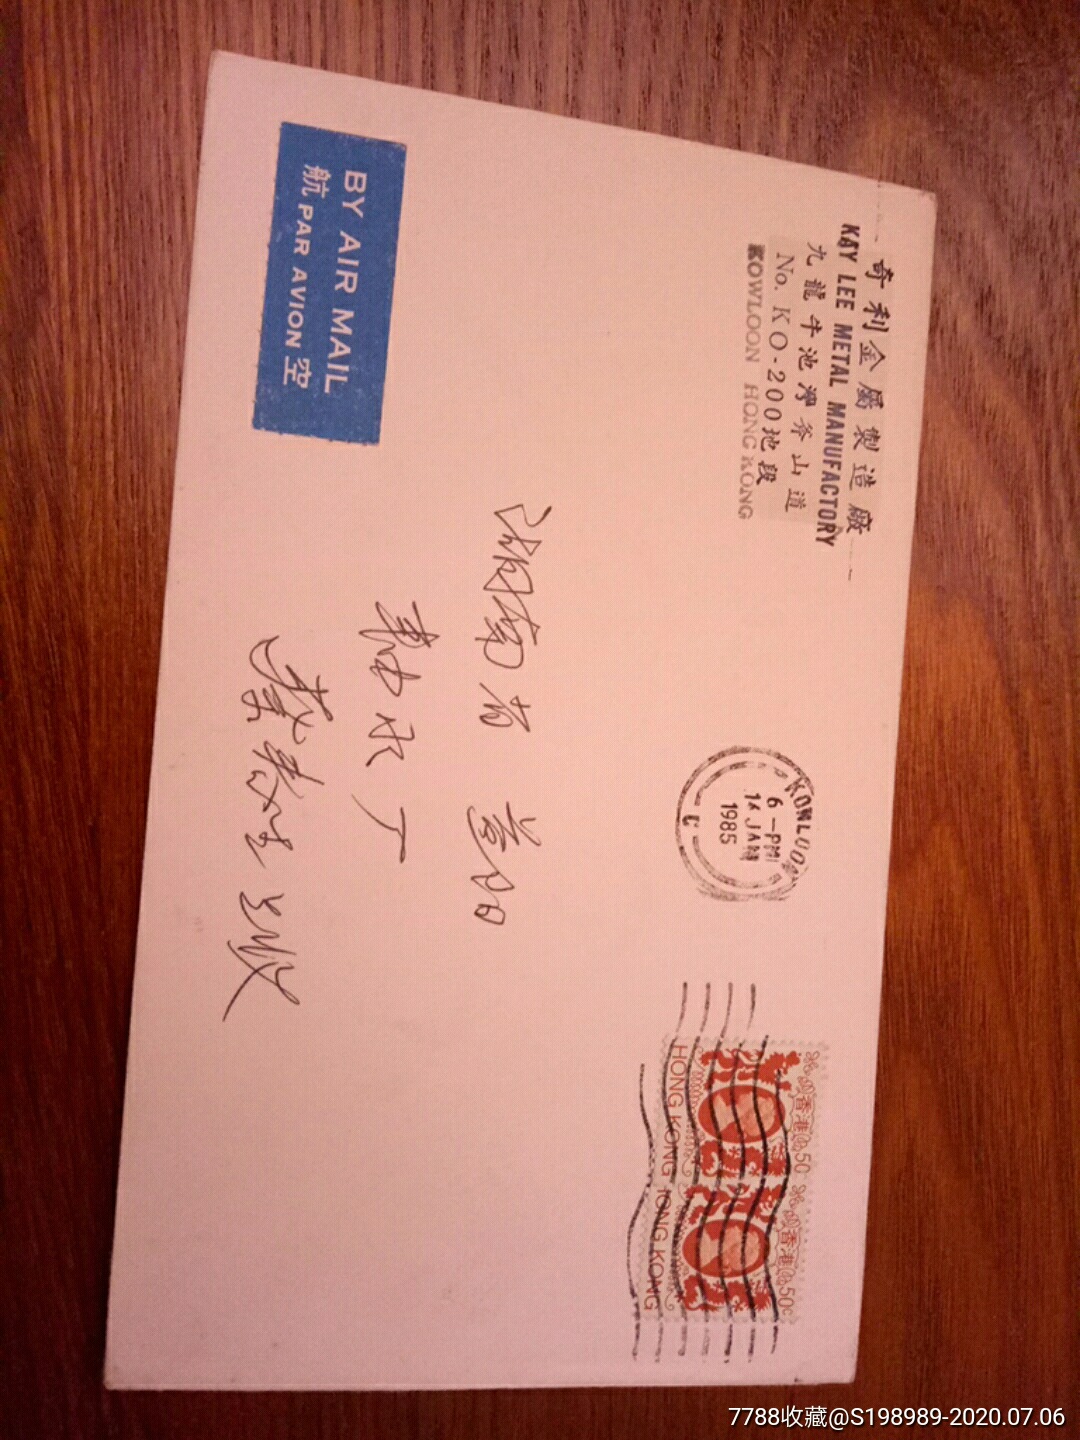 奇利金屬製造廠
KAY LEE METAL MANUFACTORY
九龍牛池灣斧山道
No. KO-200地段
KOWLOON HONG KONG
6-PM
JAN
1985
C
香港 50
HONG KONG
香港 50c
HONG KONG
湖南省 益阳
轴承厂
蔡
收
BY AIR MAIL
航 PAR AVION 空
7788收藏@S198989-2020.07.06